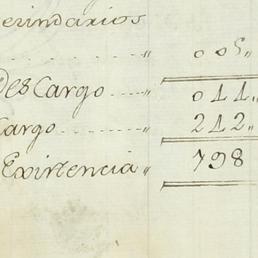 erindarios
........ „ 005„
DesCargo....„ 011„
Cargo........„ 212„
Existencia „ 798